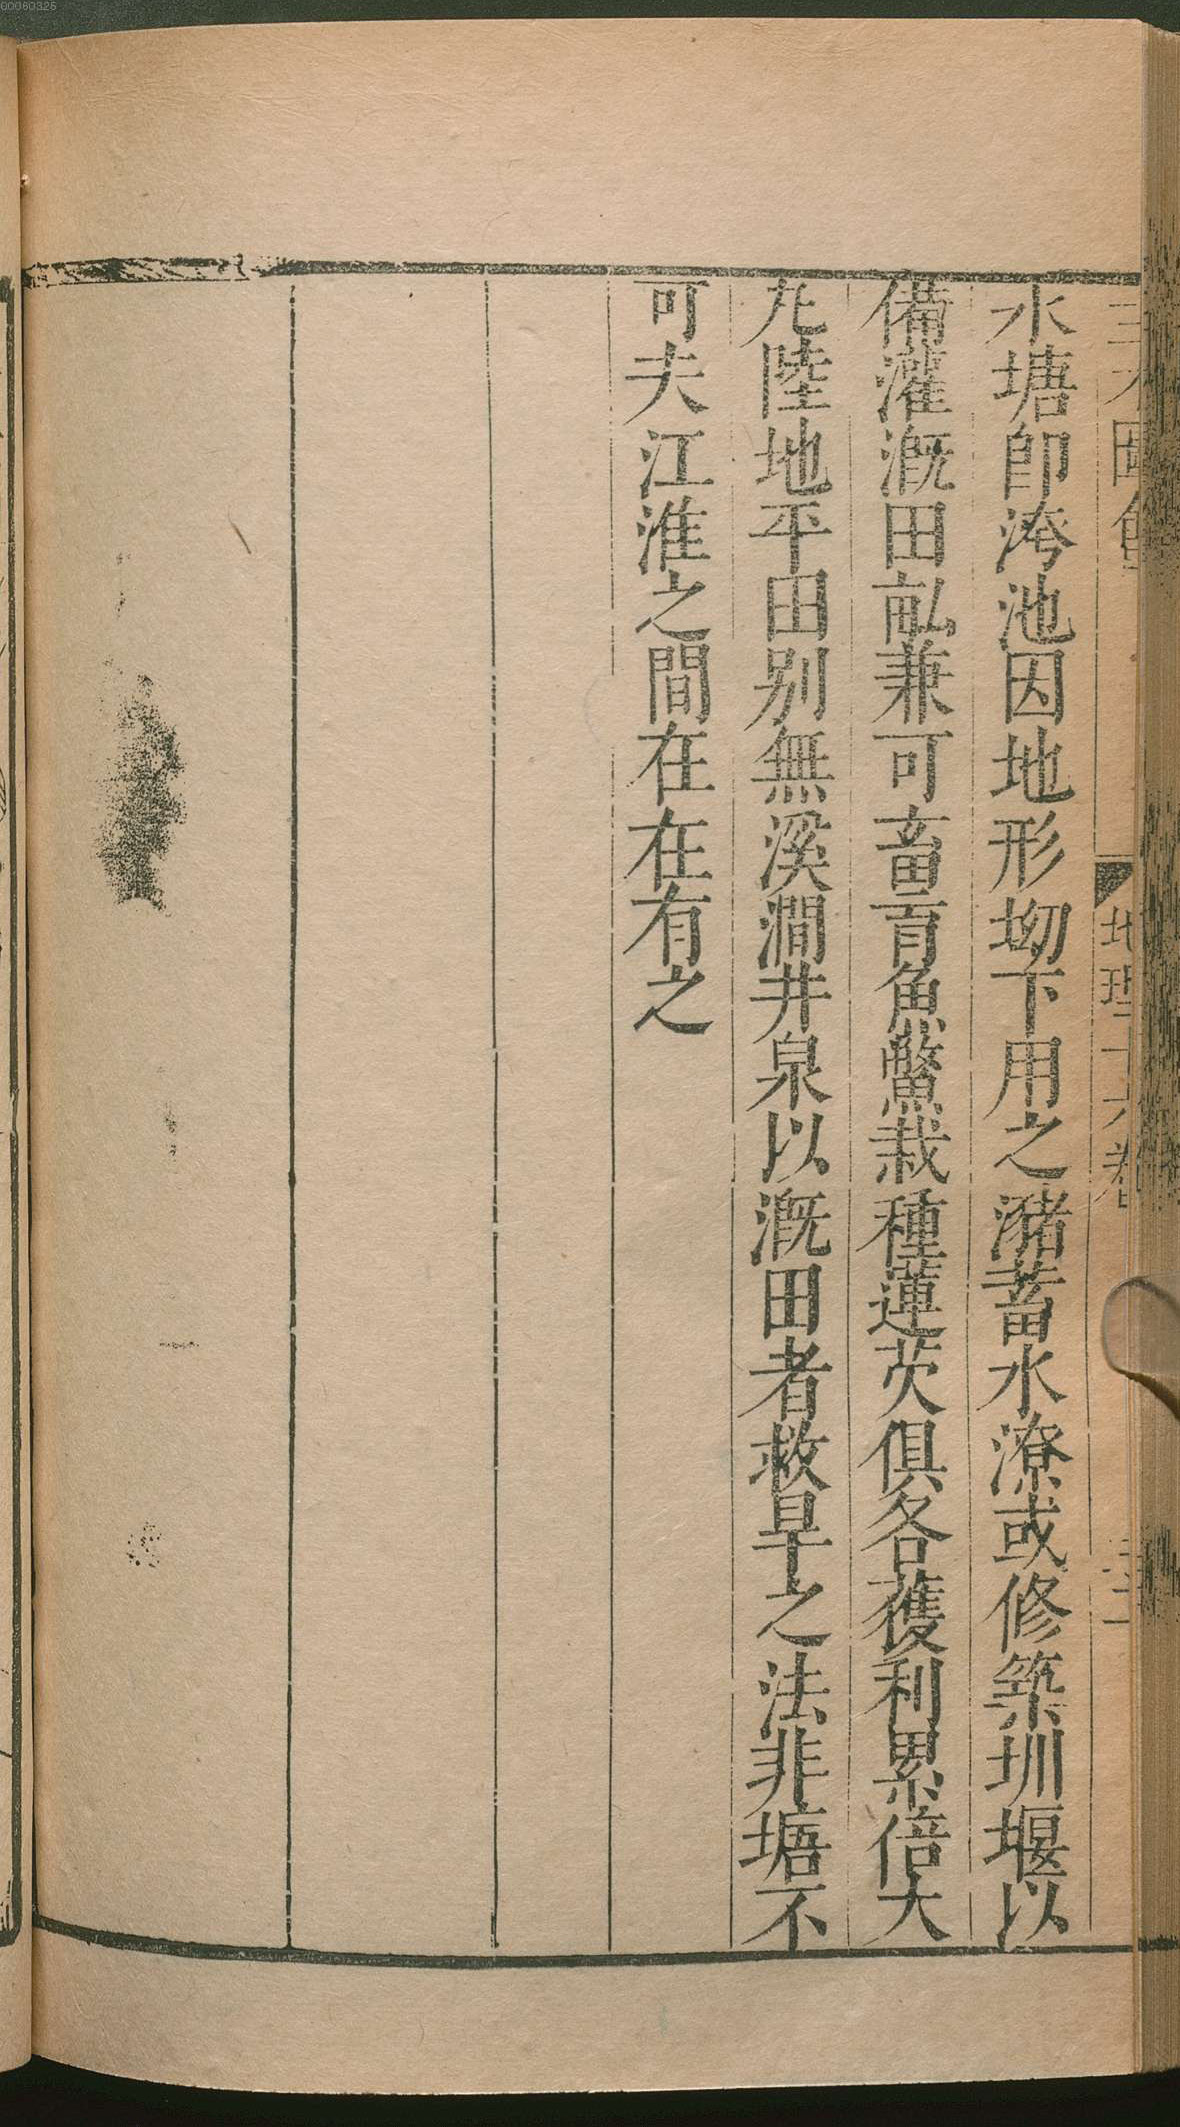 00060325
三才圖會
地理十六卷
水塘卽洿池因地形坳下用之瀦蓄水潦或修築圳堰以
備灌溉田畝兼可畜育魚鱉栽種蓮芡俱各獲利累倍大
凡陸地平田別無溪澗井泉以溉田者救旱之法非塘不
可夫江淮之間在在有之